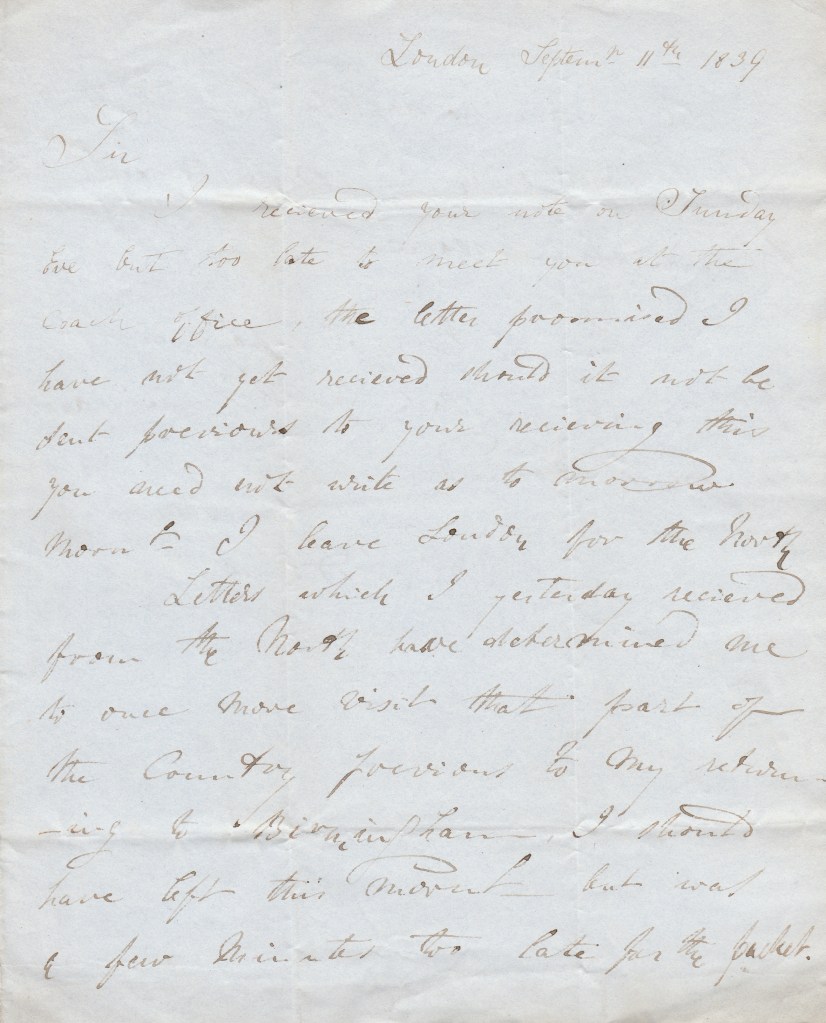 London Septemr 11th 1839
Sir
I recieved your note on Sunday
Eve but too late to meet you at the
Coach office, the letter promised I
have not yet recieved should it not be
sent previous to your recieving this
you need not write as to morrow
Morng I leave London for the North
Letters which I yesterday recieved
from the North have determined me
to once more visit that part of
the Country previous to my return-
-ing to Birmingham, I should
have left this morng but was
a few Minutes too late for the packet.